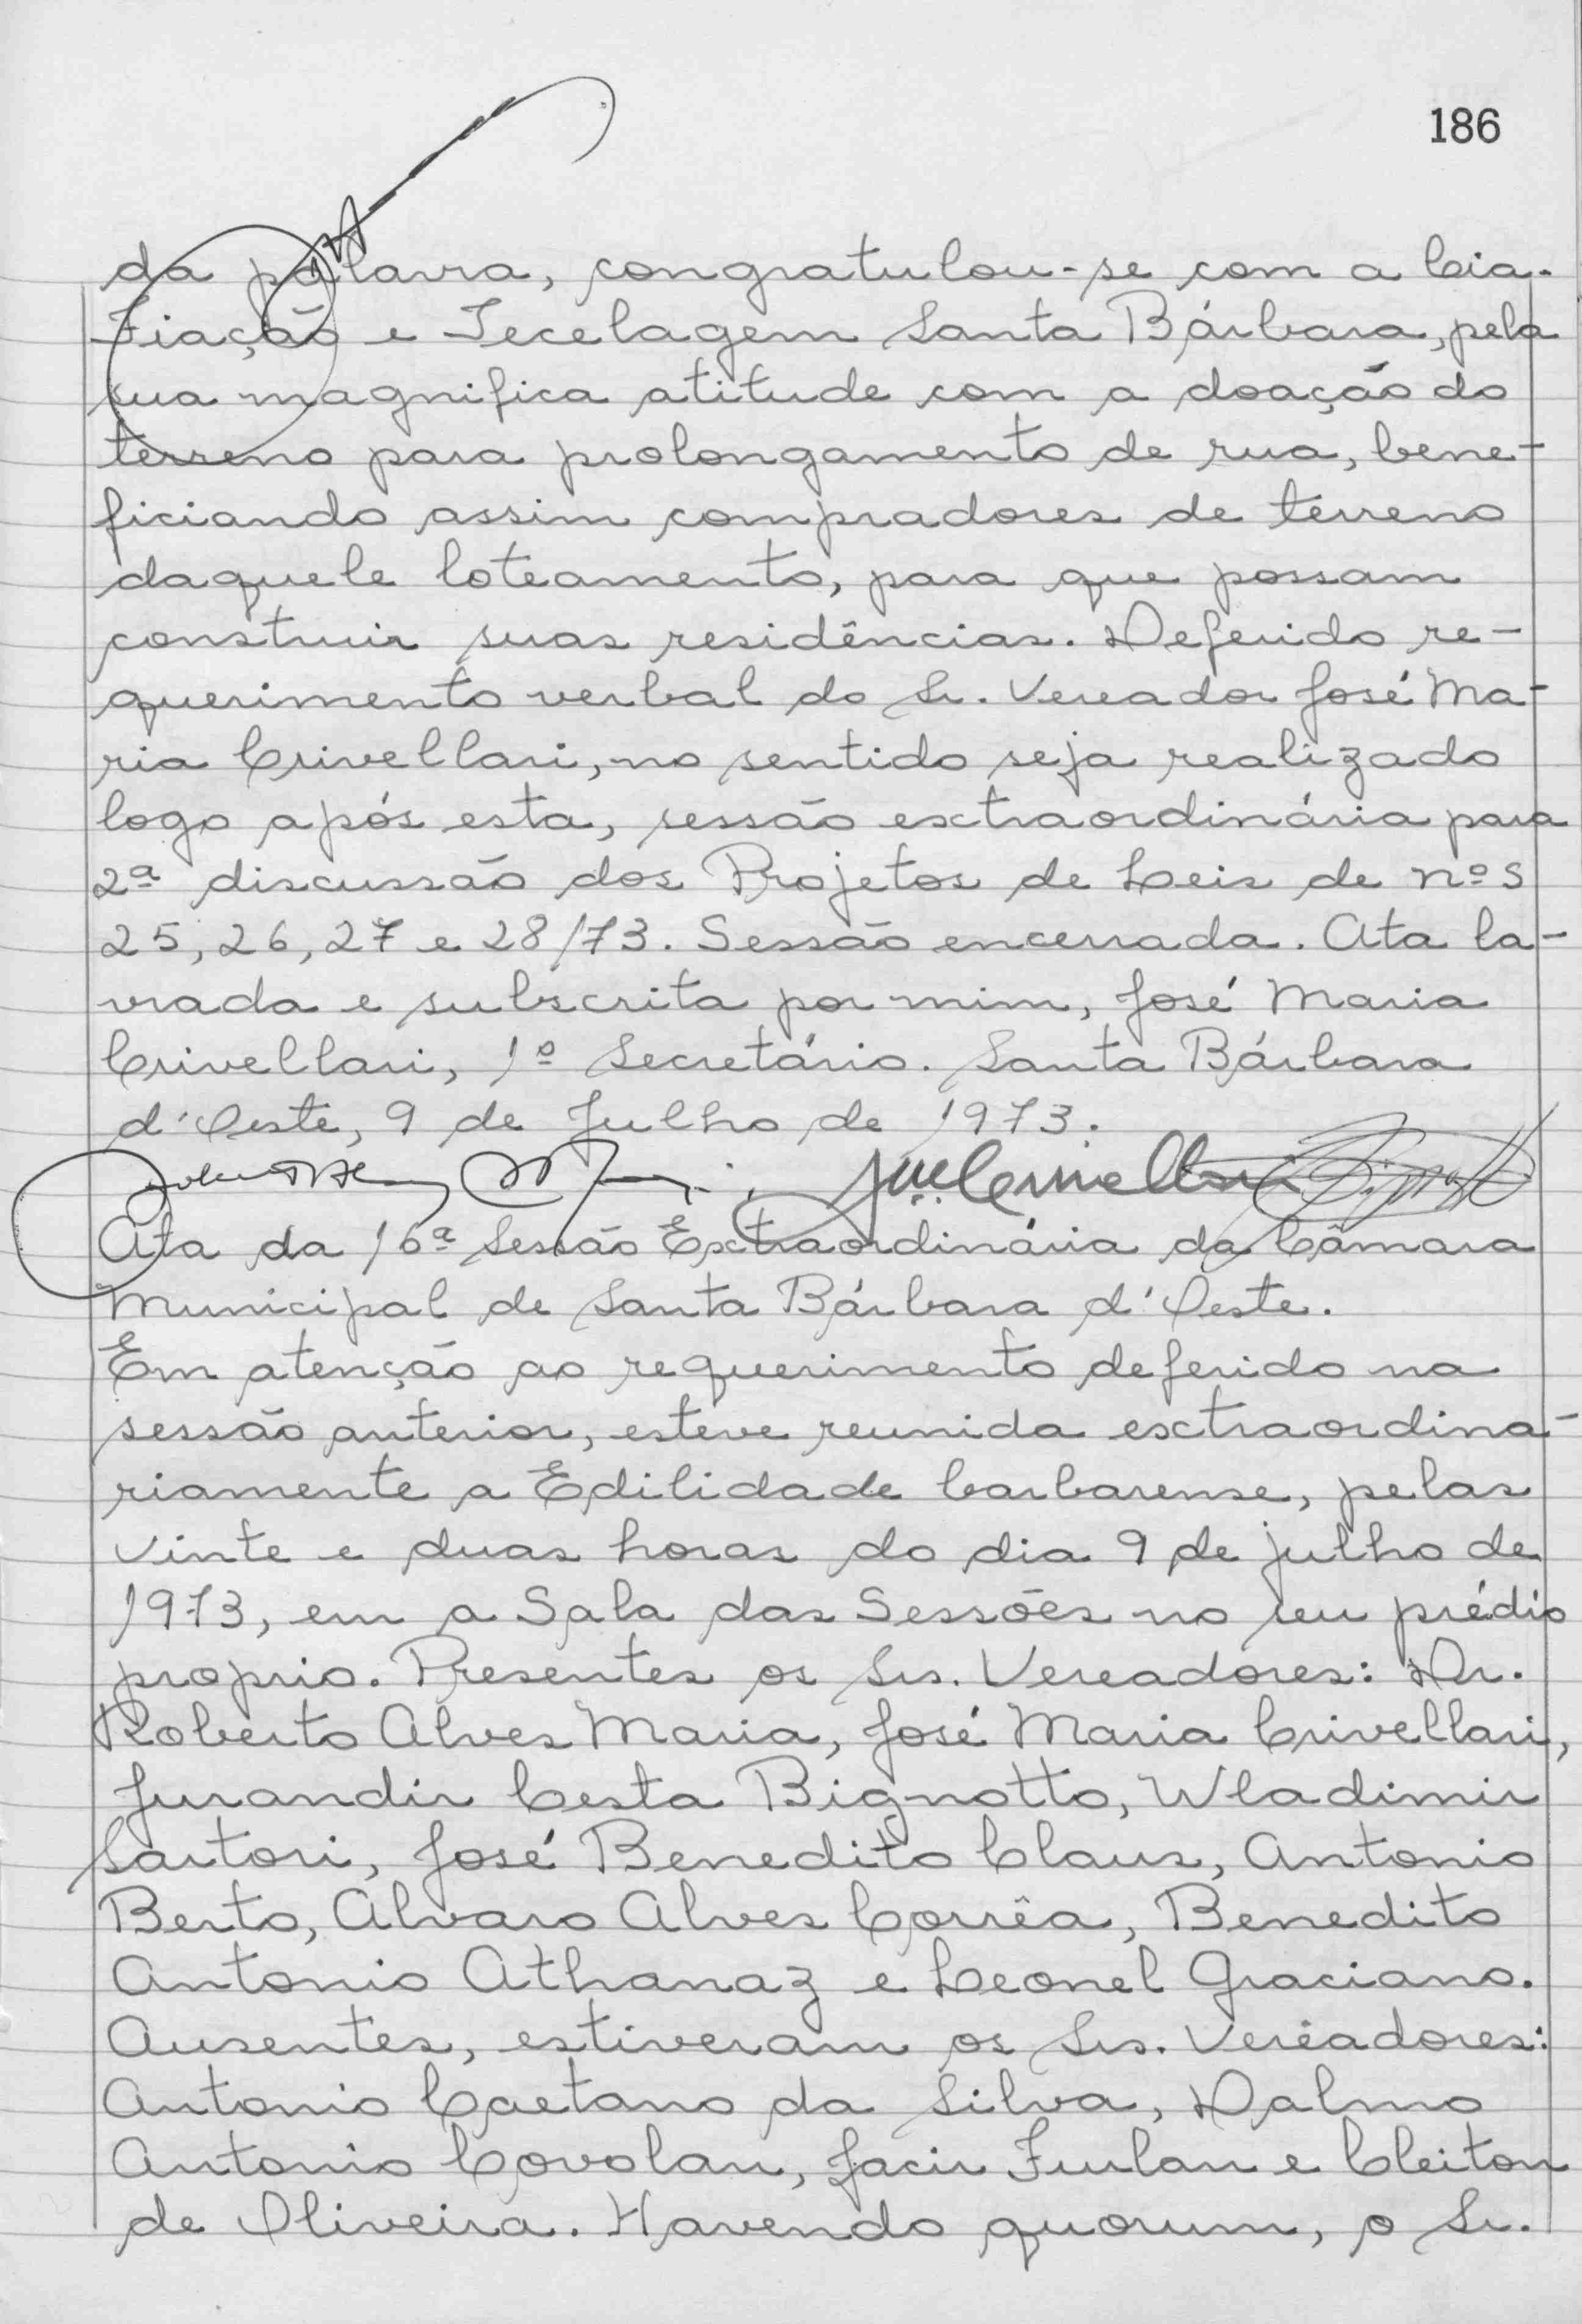 186
da palavra, congratulou-se com a Cia.
Fiação e Tecelagem Santa Bárbara, pela
sua magnifica atitude com a doação do
terreno para prolongamento de rua, bene-
ficiando assim compradores de terreno
daquele loteamento, para que possam
construir suas residências. Deferido re-
querimento verbal do Sr. Vereador José Ma-
ria Crivellari, no sentido seja realizado
logo após esta, sessão extraordinária para
2ª discussão dos Projetos de Leis de nºs
25, 26, 27 e 28/73. Sessão encerrada. Ata la-
vrada e subscrita por mim, José Maria
Crivellari, 1º Secretário. Santa Bárbara
d'Oeste, 9 de Julho de 1973.
Ata da 16ª Sessão Extraordinária da Câmara
Municipal de Santa Bárbara d'Oeste.
Em atenção ao requerimento deferido na
sessão anterior, esteve reunida extraordina-
riamente a Edilidade barbarense, pelas
vinte e duas horas do dia 9 de julho de
1973, em a Sala das Sessões no seu prédio
proprio. Presentes os Srs. Vereadores: Dr.
Roberto Alves Maria, José Maria Crivellari,
Jurandir Cesta Bignotto, Wladimir
Sartori, José Benedito Claus, Antonio
Berto, Alvaro Alves Corrêa, Benedito
Antonio Athanaz e Leonel Graciano.
Ausentes, estiveram os Srs. Vereadores:
Antonio Caetano da Silva, Dalmo
Antonio Covolan, Jacir Furlan e Cleiton
de Oliveira. Havendo quorum, o Sr.